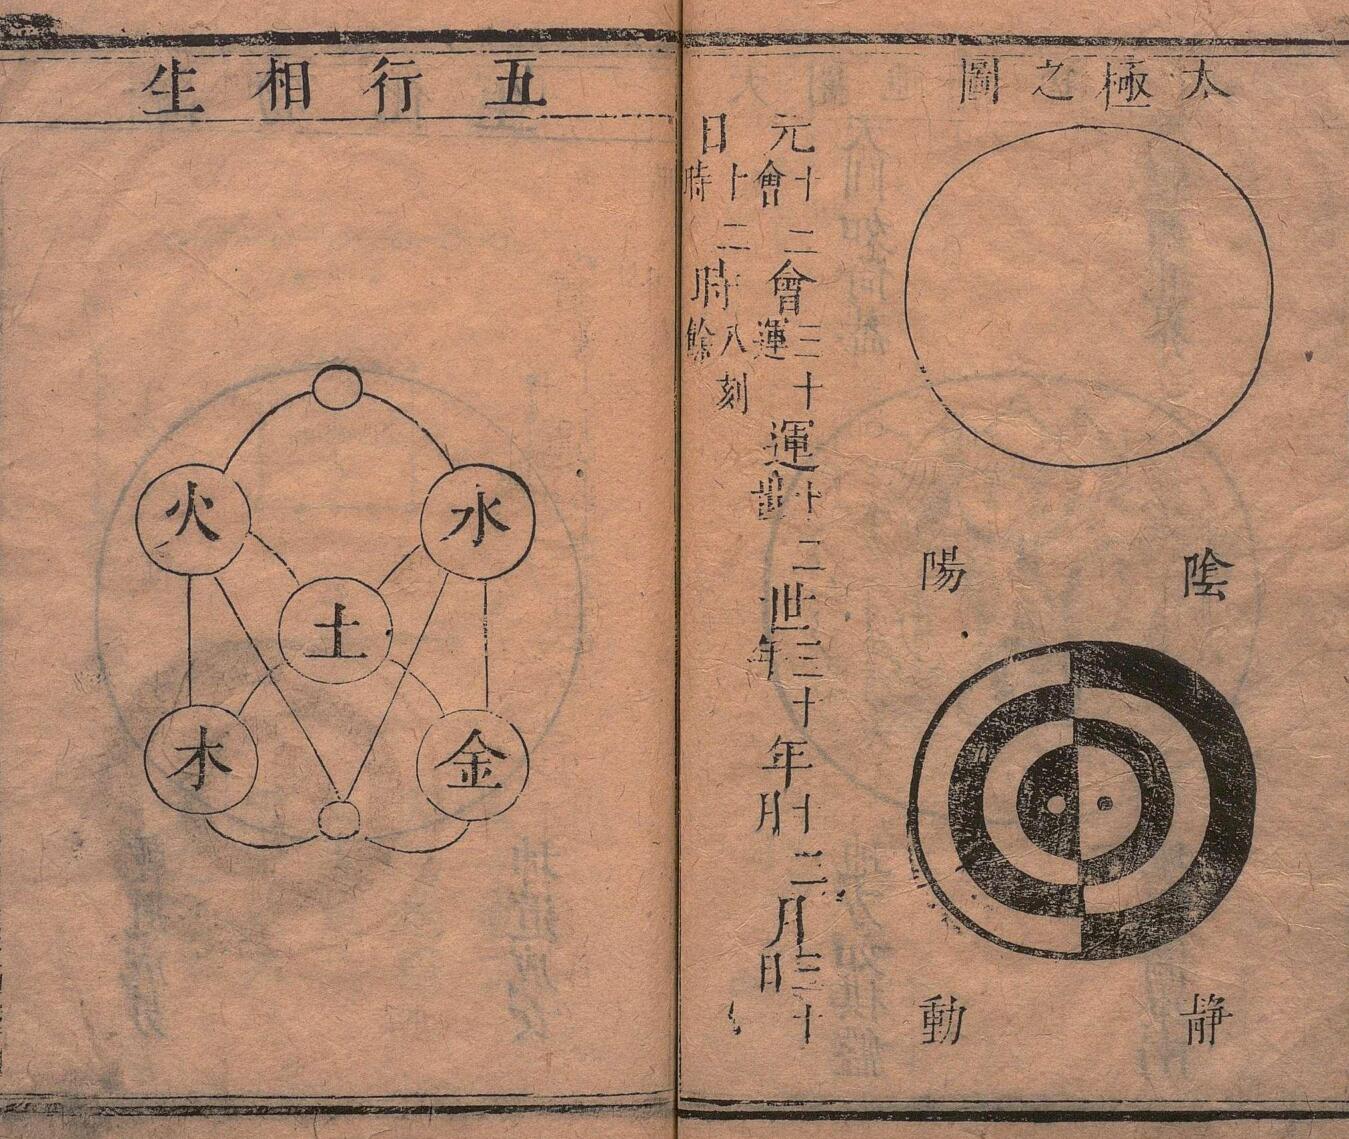 太極之圖
陰
陽
静
動
元十二會會三十運運十二世世三十年年十二月月三十日
日十二時時八刻餘
五行相生
水
火
土
金
木